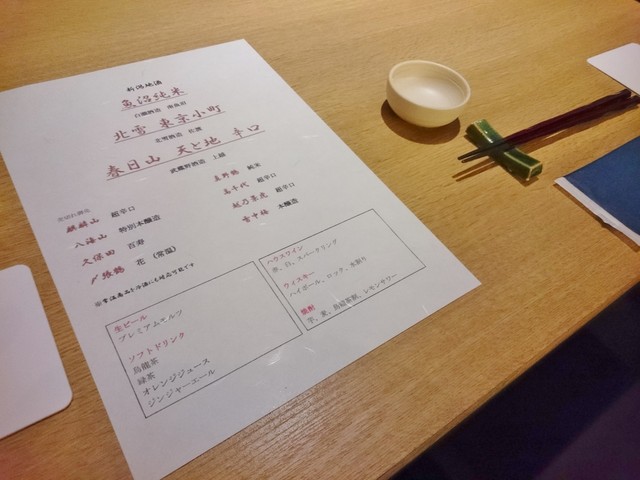 新潟地酒
魚沼純米
白瀧酒造 南魚沼
北雪 東京小町
北雪酒造 佐渡
春日山 天と地 辛口
武蔵野酒造 上越
麒麟山 超辛口
八海山 特別本醸造
久保田 百寿
〆張鶴 花 (常温)
真野鶴 純米
超辛口
越乃景虎 超辛口
雪中梅 本醸造
生ビール
プレミアムモルツ
ソフトドリンク
烏龍茶
緑茶
オレンジジュース
ジンジャーエール
ハウスワイン
赤、白、スパークリング
ウィスキー
ハイボール、ロック、水割り
焼酎
芋、麦、烏龍茶割、レモンサワー